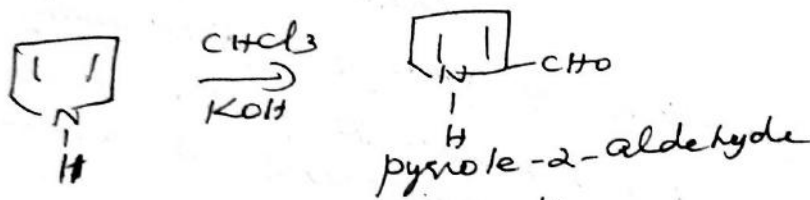 CHCl3
KOH
N
H
N
CHO
H
pyrrole-2-aldehyde